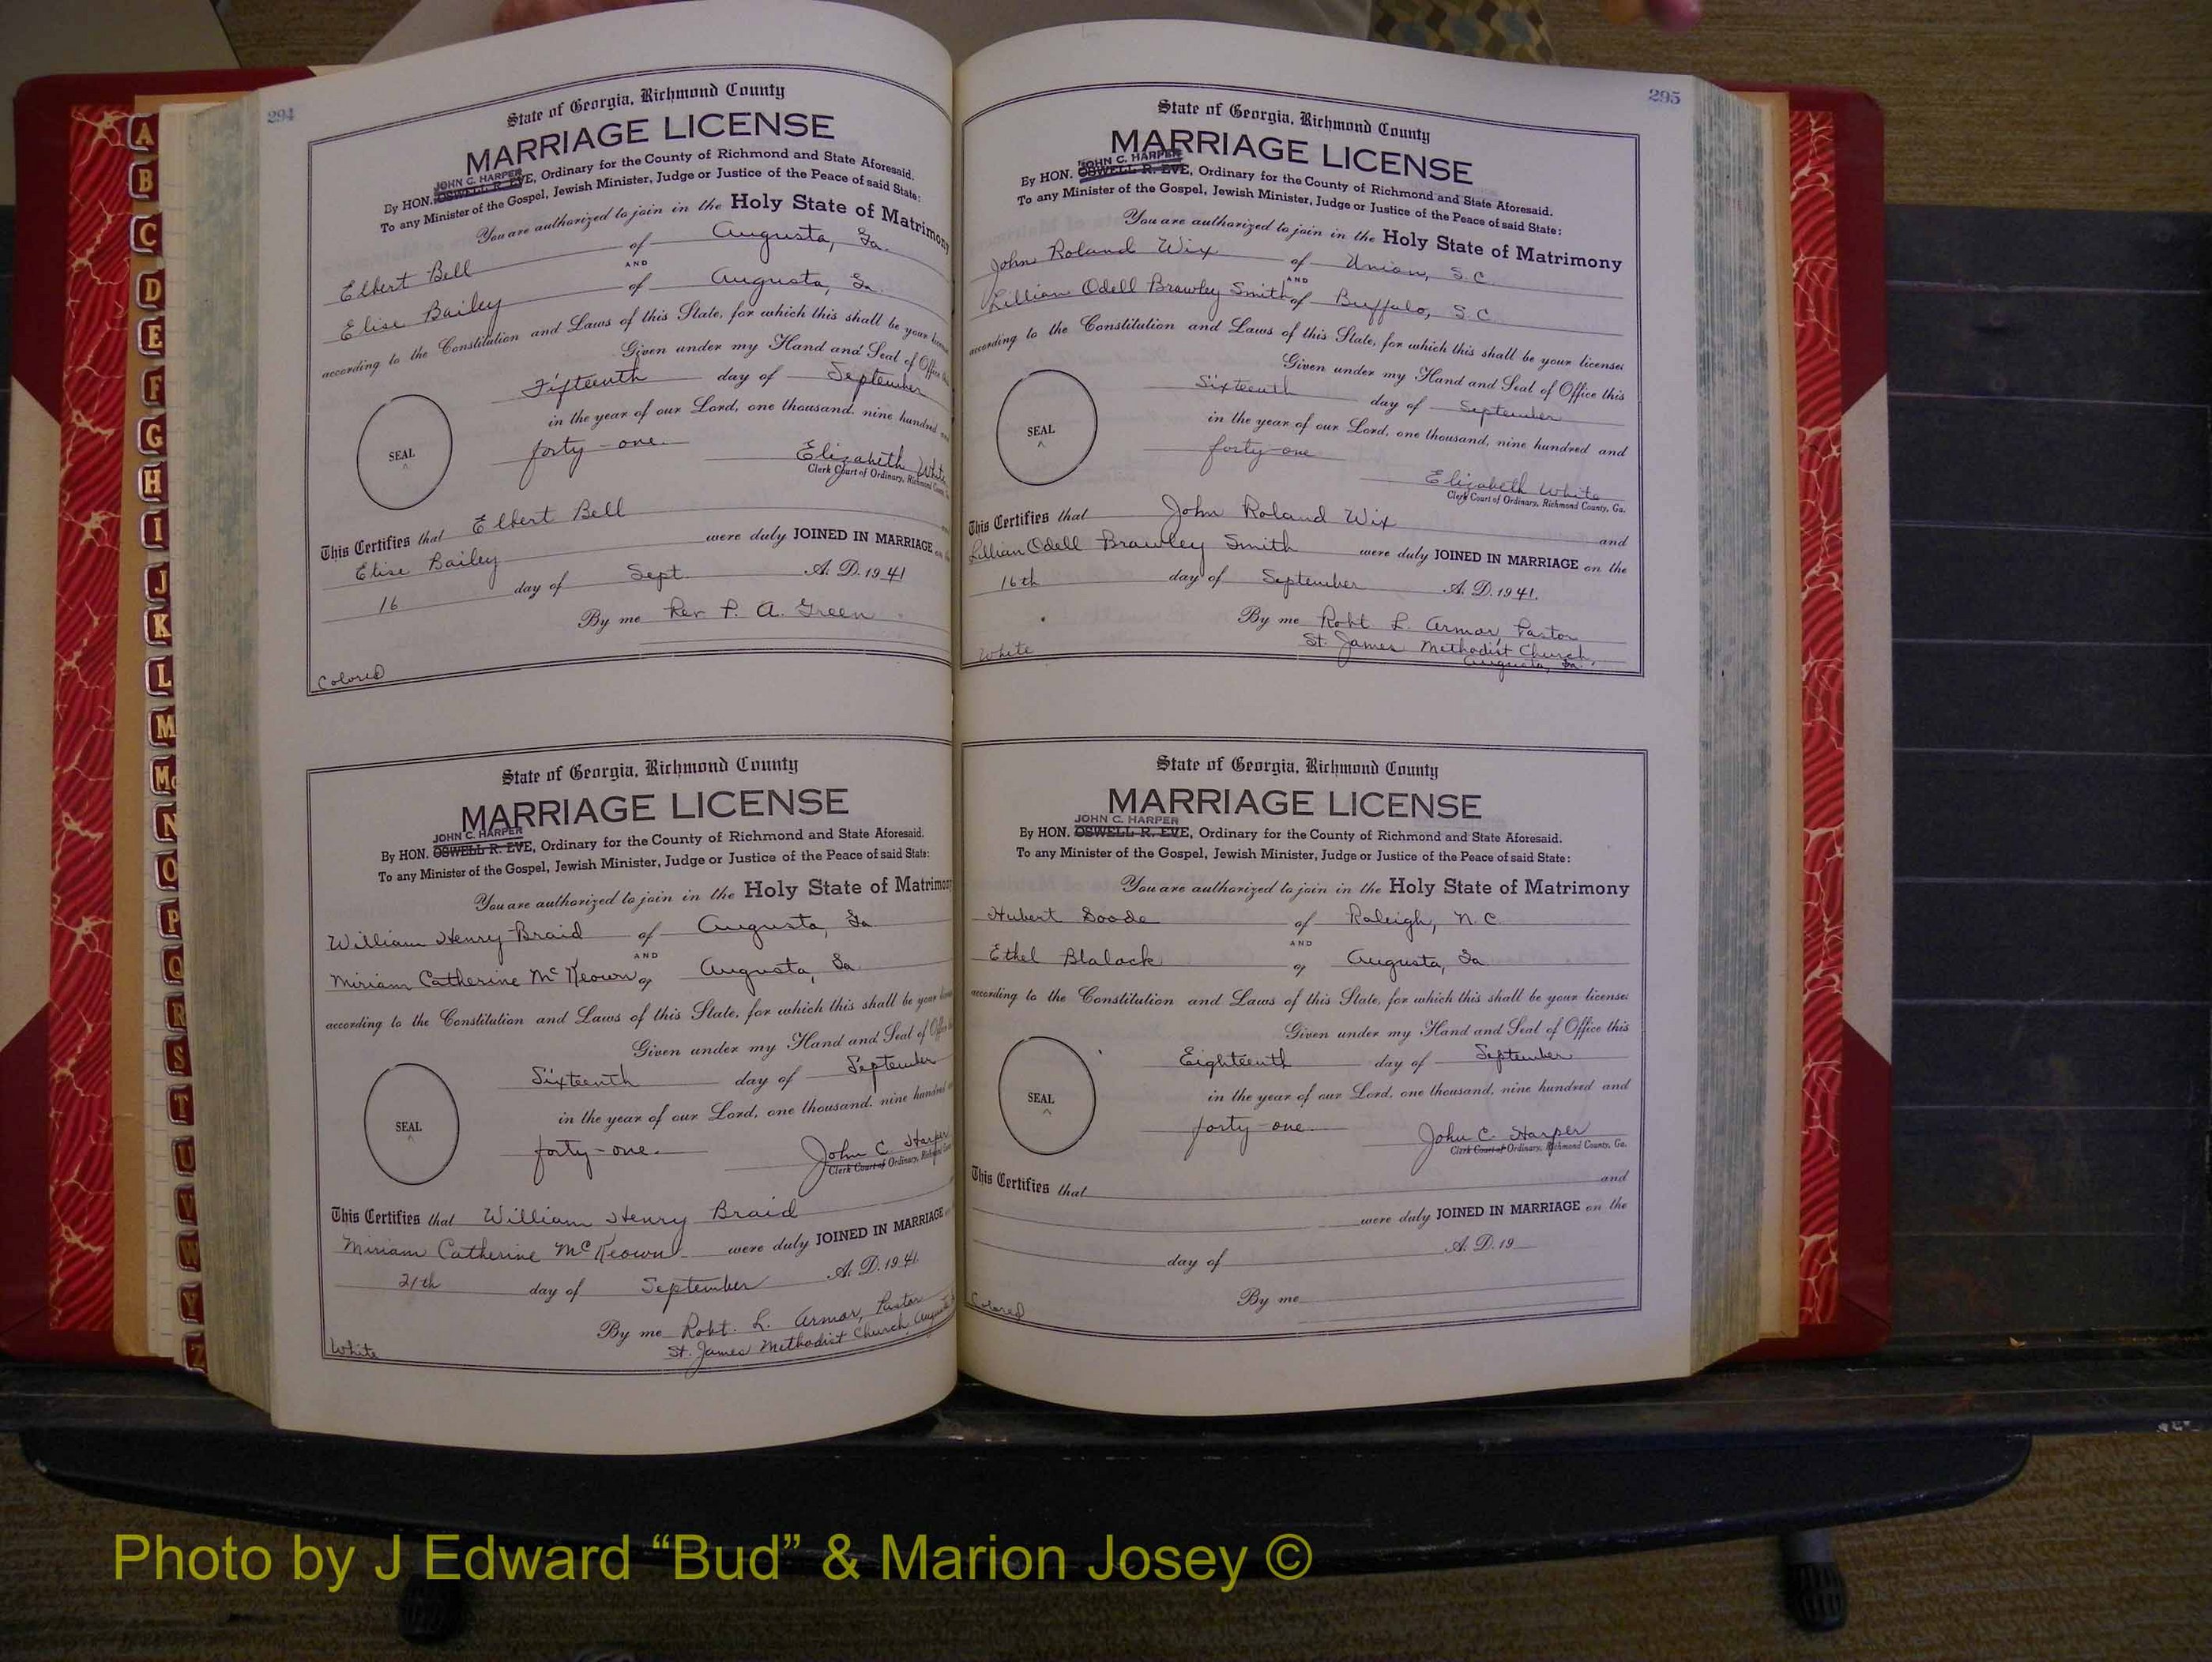 294
State of Georgia, Richmond County
MARRIAGE LICENSE
JOHN C. HARPER
By HON. OSWELL R. EVE, Ordinary for the County of Richmond and State Aforesaid.
To any Minister of the Gospel, Jewish Minister, Judge or Justice of the Peace of said State:
You are authorized to join in the Holy State of Matrimony
Elbert Bell of Augusta, Ga.
AND
Elise Bailey of Augusta, Ga.
according to the Constitution and Laws of this State, for which this shall be your
Given under my Hand and Seal of Office
Fifteenth day of September
in the year of our Lord, one thousand, nine hundred
forty-one.
SEAL
Elizabeth White
Clerk Court of Ordinary, Richmond County
This Certifies that Elbert Bell
Elise Bailey were duly JOINED IN MARRIAGE
16 day of Sept. A. D. 1941
By me Rev. P. A. Green
Colored
State of Georgia, Richmond County
MARRIAGE LICENSE
JOHN C. HARPER
By HON. OSWELL R. EVE, Ordinary for the County of Richmond and State Aforesaid.
To any Minister of the Gospel, Jewish Minister, Judge or Justice of the Peace of said State:
You are authorized to join in the Holy State of Matrimony
William Henry Braid of Augusta, Ga
AND
Miriam Catherine McKeown of Augusta, Ga.
according to the Constitution and Laws of this State, for which this shall be your
Given under my Hand and Seal of Office
Sixteenth day of September
in the year of our Lord, one thousand, nine hundred
forty-one.
SEAL
John C. Harper
Clerk Court of Ordinary, Richmond
This Certifies that William Henry Braid
Miriam Catherine McKeown were duly JOINED IN MARRIAGE
21th day of September A. D. 1941
By me Robt. L. Armor, Pastor
St. James Methodist Church
White
295
State of Georgia, Richmond County
MARRIAGE LICENSE
JOHN C. HARPER
By HON. OSWELL R. EVE, Ordinary for the County of Richmond and State Aforesaid.
To any Minister of the Gospel, Jewish Minister, Judge or Justice of the Peace of said State:
You are authorized to join in the Holy State of Matrimony
John Roland Wix of Union, S.C.
AND
Lillian Odell Brawley Smith of Buffalo, S.C.
according to the Constitution and Laws of this State, for which this shall be your license:
Given under my Hand and Seal of Office this
Sixteenth day of September
in the year of our Lord, one thousand, nine hundred and
forty-one
SEAL
Elizabeth White
Clerk Court of Ordinary, Richmond County, Ga.
This Certifies that John Roland Wix and
Lillian Odell Brawley Smith were duly JOINED IN MARRIAGE on the
16th day of September A. D. 1941.
By me Robt. L. Armor, Pastor
St. James Methodist Church,
Augusta, Ga.
White
State of Georgia, Richmond County
MARRIAGE LICENSE
JOHN C. HARPER
By HON. OSWELL R. EVE, Ordinary for the County of Richmond and State Aforesaid.
To any Minister of the Gospel, Jewish Minister, Judge or Justice of the Peace of said State:
You are authorized to join in the Holy State of Matrimony
Hubert Goode of Raleigh, N.C.
AND
Ethel Blalock of Augusta, Ga
according to the Constitution and Laws of this State, for which this shall be your license:
Given under my Hand and Seal of Office this
Eighteenth day of September
in the year of our Lord, one thousand, nine hundred and
forty-one.
SEAL
John C. Harper
Clerk Court of Ordinary, Richmond County, Ga.
This Certifies that and
were duly JOINED IN MARRIAGE on the
day of A. D. 19
By me
Colored
A
B
C
D
E
F
G
H
I
J
K
L
M
Mc
N
O
P
Q
R
S
T
U
V
W
Y
Z
Photo by J Edward “Bud” & Marion Josey ©